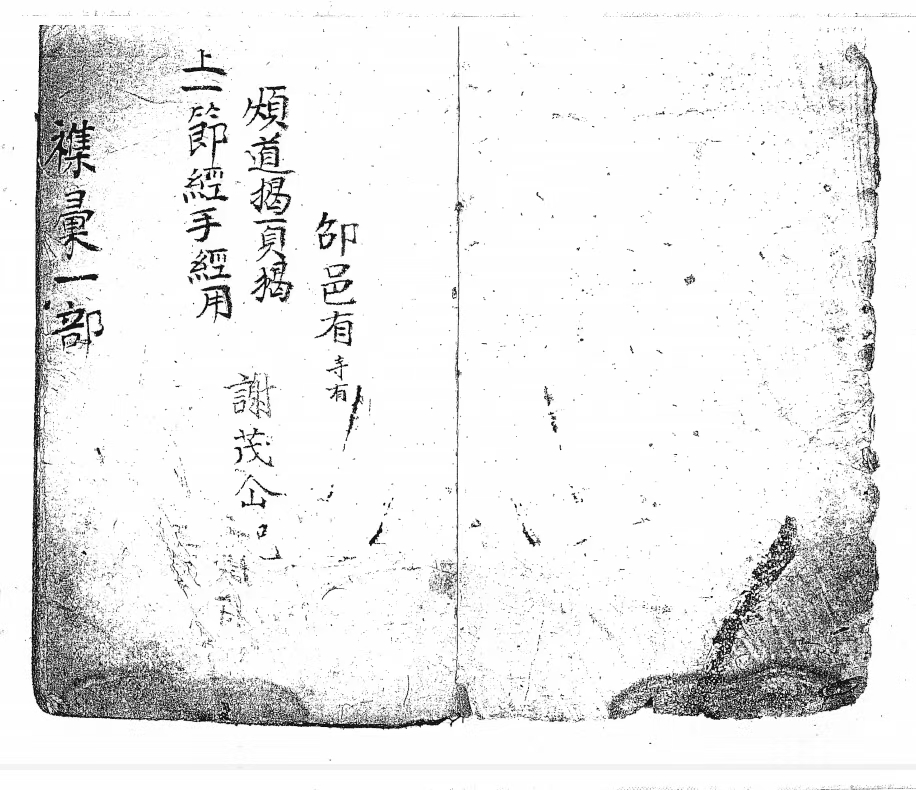 邵邑有
寺有
煩道揭頁揭
上一節經手經用
謝茂
襍彙一部